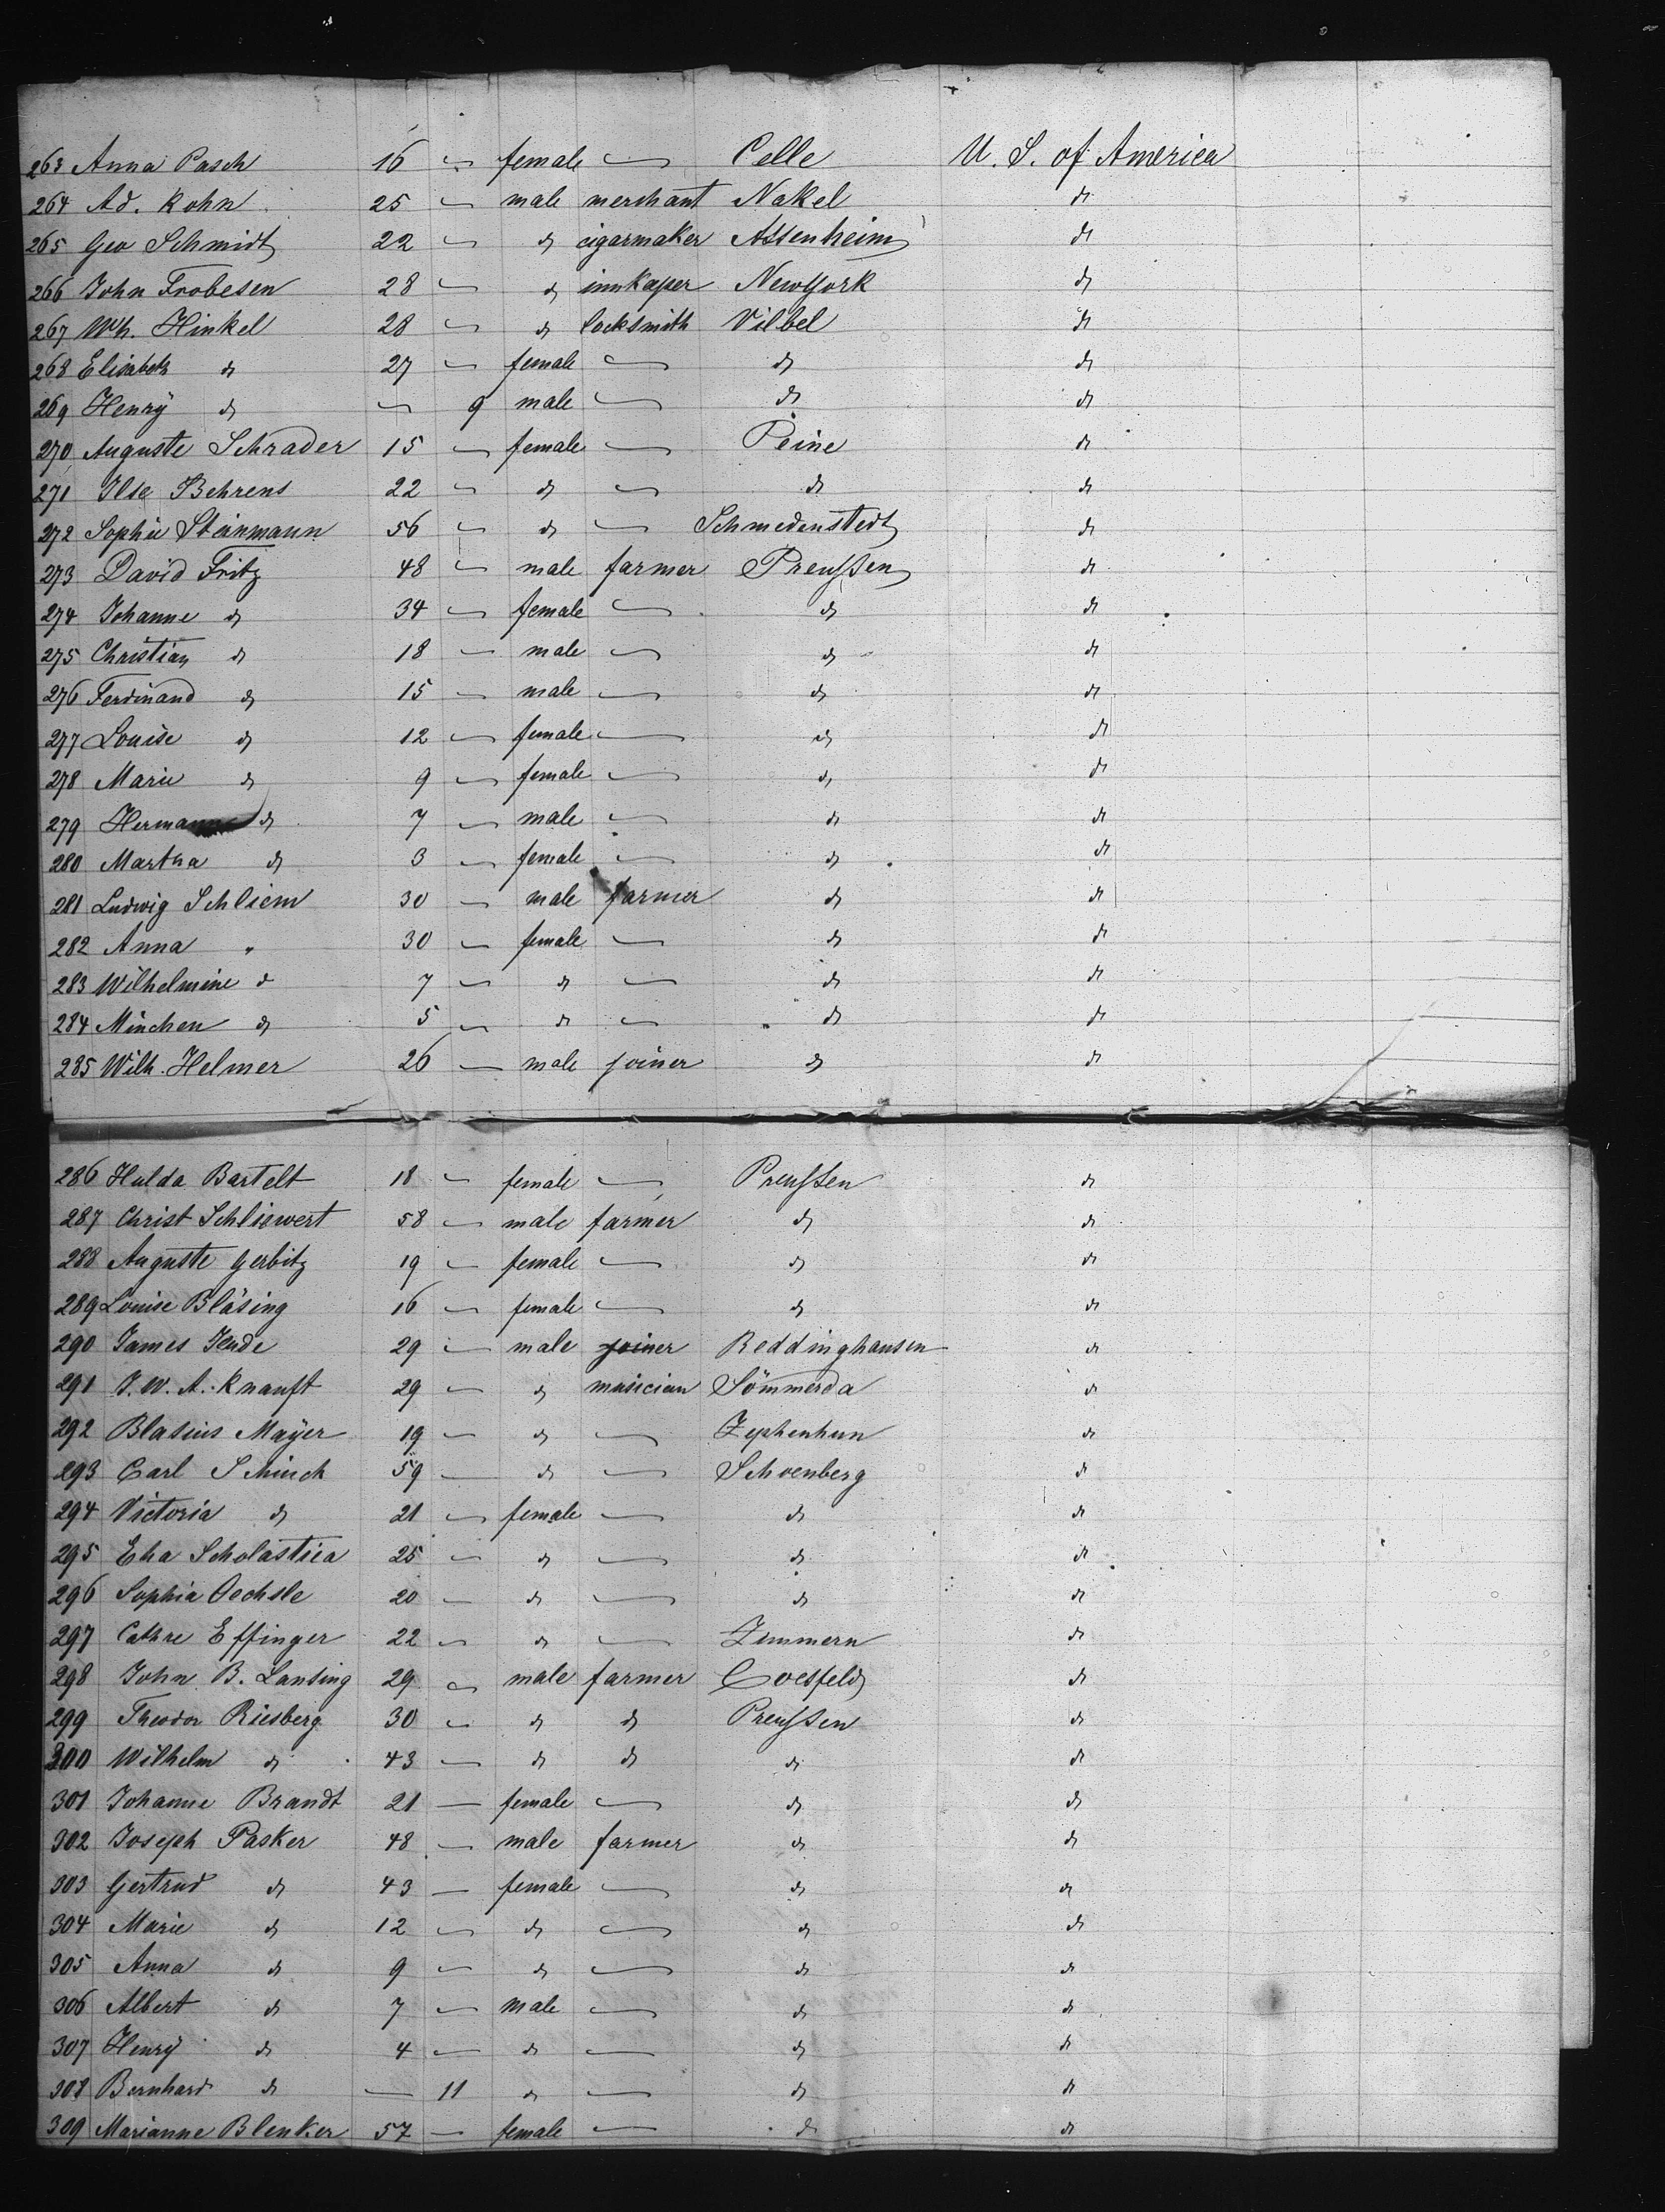 263 Anna Pasch 16 — female — Celle U. S. of America
264 Ad. Kohn 25 — male merchant Nakel do
265 Geo Schmidt 22 — do cigarmaker Assenheim do
266 John Frobesen 28 — do innkaper Newyork do
267 Wh. Hinkel 28 — do locksmith Vilbel do
268 Elisabeth do 27 — female — do do
269 Henry do — 9 male — do do
270 Auguste Schrader 15 — female — Peine do
271 Ilse Behrens 22 — do — do do
272 Sophie Steinmann 56 — do — Schmedenstedt do
273 David Fritz 48 — male farmer Preußen do
274 Johanne do 34 — female — do do
275 Christian do 18 — male — do do
276 Ferdinand do 15 — male — do do
277 Louise do 12 — female — do do
278 Marie do 9 — female — do do
279 Hermann do 7 — male — do do
280 Martha do 3 — female — do do
281 Ludwig Schliem 30 — male farmer do do
282 Anna " 30 — female — do do
283 Wilhelmine do 7 — do — do do
284 Minchen do 5 — do — do do
285 Wilh. Helmer 26 — male joiner do do
286 Hulda Bartelt 18 — female — Preußen do
287 Christ Schliewert 58 — male farmer do do
288 Auguste Gerbitz 19 — female — do do
289 Louise Bläsing 16 — female — do do
290 James 29 — male joiner Reddinghausen do
291 J. W. A. Knauft 29 — do musician Sömmerda do
292 Blasius Mayer 19 — do — do
293 Carl 59 — do — Schoenberg do
294 Victoria do 21 — female — do do
295 Eha Scholastica 25 — do — do do
296 Sophia Oechsle 20 — do — do do
297 Cathre Effinger 22 — do — Zimmern do
298 John B. Lansing 29 — male farmer Coesfeld do
299 Theodor Riesberg 30 — do do Preußen do
300 Wilhelm do 43 — do do do do
301 Johanne Brandt 21 — female — do do
302 Joseph Pasker 48 — male farmer do do
303 Gertrud do 43 — female — do do
304 Marie do 12 — do — do do
305 Anna do 9 — do — do do
306 Albert do 7 — male — do do
307 Henry do 4 — do — do do
308 Bernhard do — 11 do — do do
309 Marianne Blenker 57 — female — do do